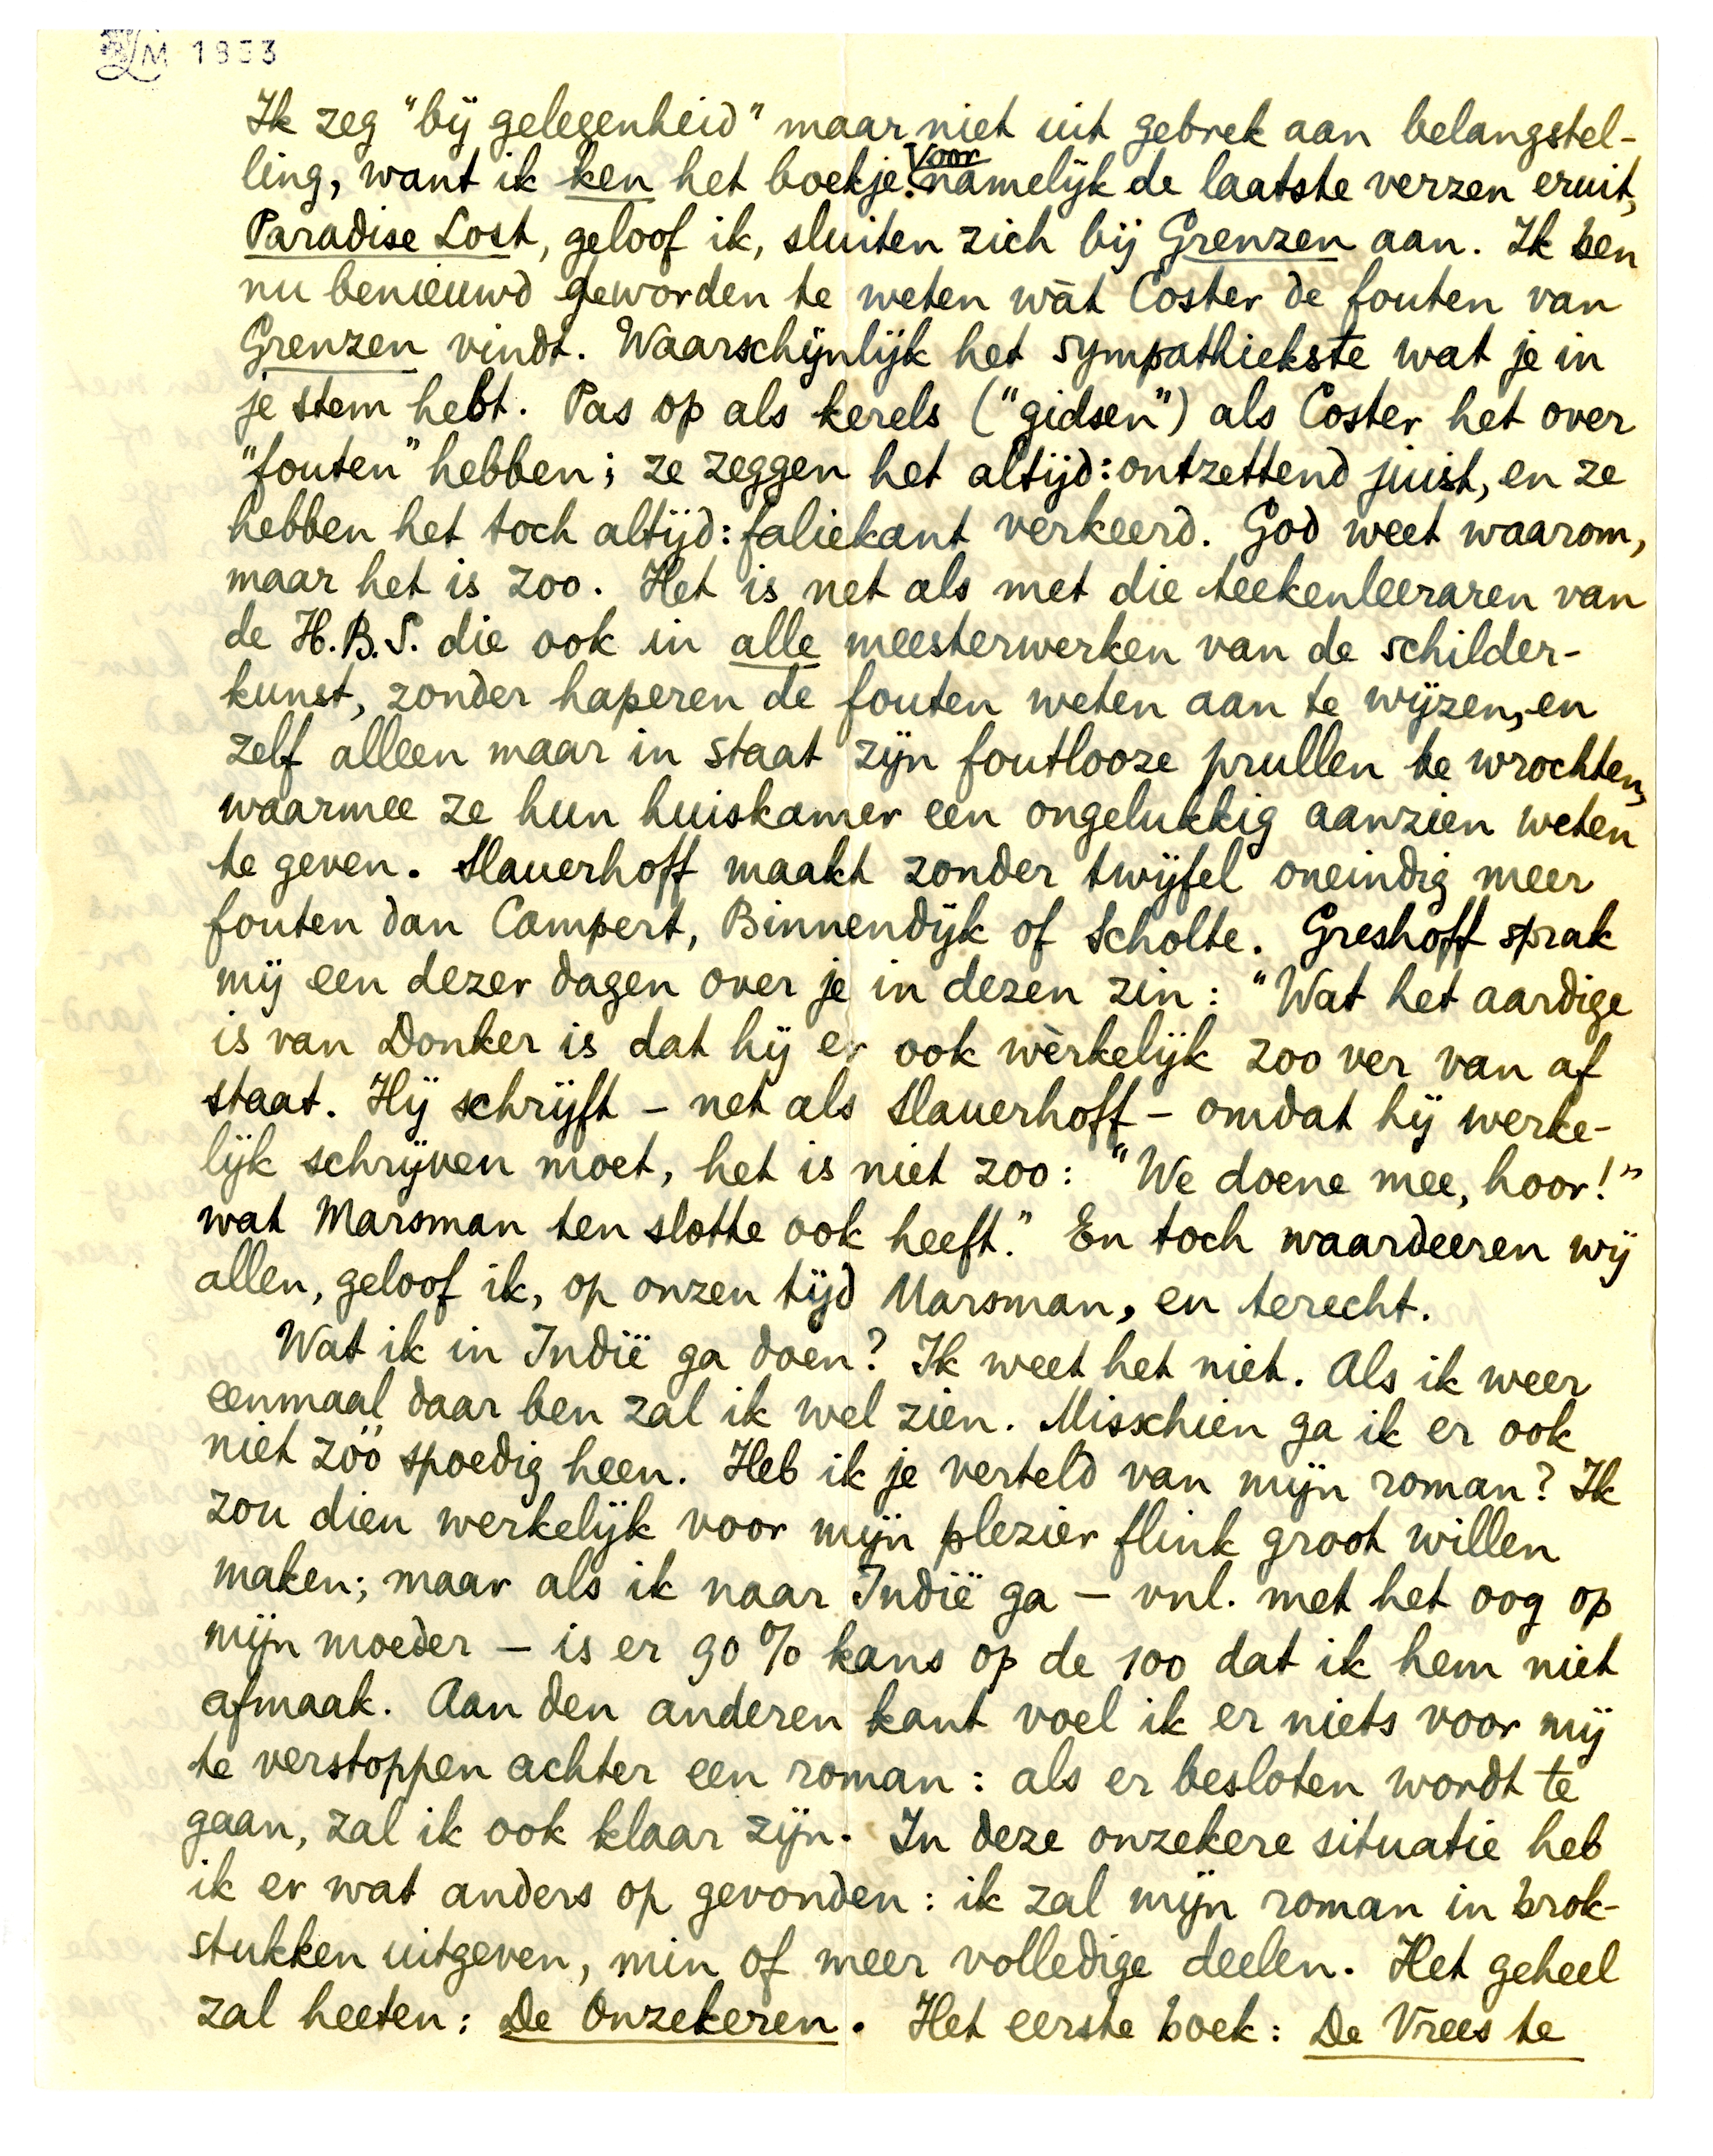 LM 1933
Ik zeg "bij gelegenheid" maar niet uit gebrek aan belangstel-
ling, want ik ken het boekje. Voornamelijk de laatste verzen eruit,
Paradise Lost, geloof ik, sluiten zich bij Grenzen aan. Ik ben
nu benieuwd geworden te weten wàt Coster de fouten van
Grenzen vindt. Waarschijnlijk het sympathiekste wat je in
je stem hebt. Pas op als kerels ("gidsen") als Coster het over
"fouten" hebben; ze zeggen het altijd: ontzettend juist, en ze
hebben het toch altijd: faliekant verkeerd. God weet waarom,
maar het is zoo. Het is net als met die teekenleeraren van
de H.B.S. die ook in alle meesterwerken van de schilder-
kunst, zonder haperen de fouten weten aan te wijzen, en
zelf alleen maar in staat zijn foutlooze prullen te wrochten,
waarmee ze hun huiskamer een ongelukkig aanzien weten
te geven. Slauerhoff maakt zonder twijfel oneindig meer
fouten dan Campert, Binnendijk of Scholte. Greshoff sprak
mij een dezer dagen over je in dezen zin: "Wat het aardige
is van Donker is dat hij er ook wèrkelijk zoo ver van af
staat. Hij schrijft – net als Slauerhoff – omdat hij werke-
lijk schrijven moet, het is niet zoo: "We doene mee, hoor!"
wat Marsman ten slotte ook heeft." En toch waardeeren wij
allen, geloof ik, op onzen tijd Marsman, en terecht.
Wat ik in Indië ga doen? Ik weet het niet. Als ik weer
eenmaal daar ben zal ik wel zien. Misschien ga ik er ook
niet zóó spoedig heen. Heb ik je verteld van mijn roman? Ik
zou dien werkelijk voor mijn plezier flink groot willen
maken; maar als ik naar Indië ga – vnl. met het oog op
mijn moeder – is er 90 % kans op de 100 dat ik hem niet
afmaak. Aan den anderen kant voel ik er niets voor mij
te verstoppen achter een roman: als er besloten wordt te
gaan, zal ik ook klaar zijn. In deze onzekere situatie heb
ik er wat anders op gevonden: ik zal mijn roman in brok-
stukken uitgeven, min of meer volledige deelen. Het geheel
zal heeten: De Onzekeren. Het eerste boek: De Vrees te